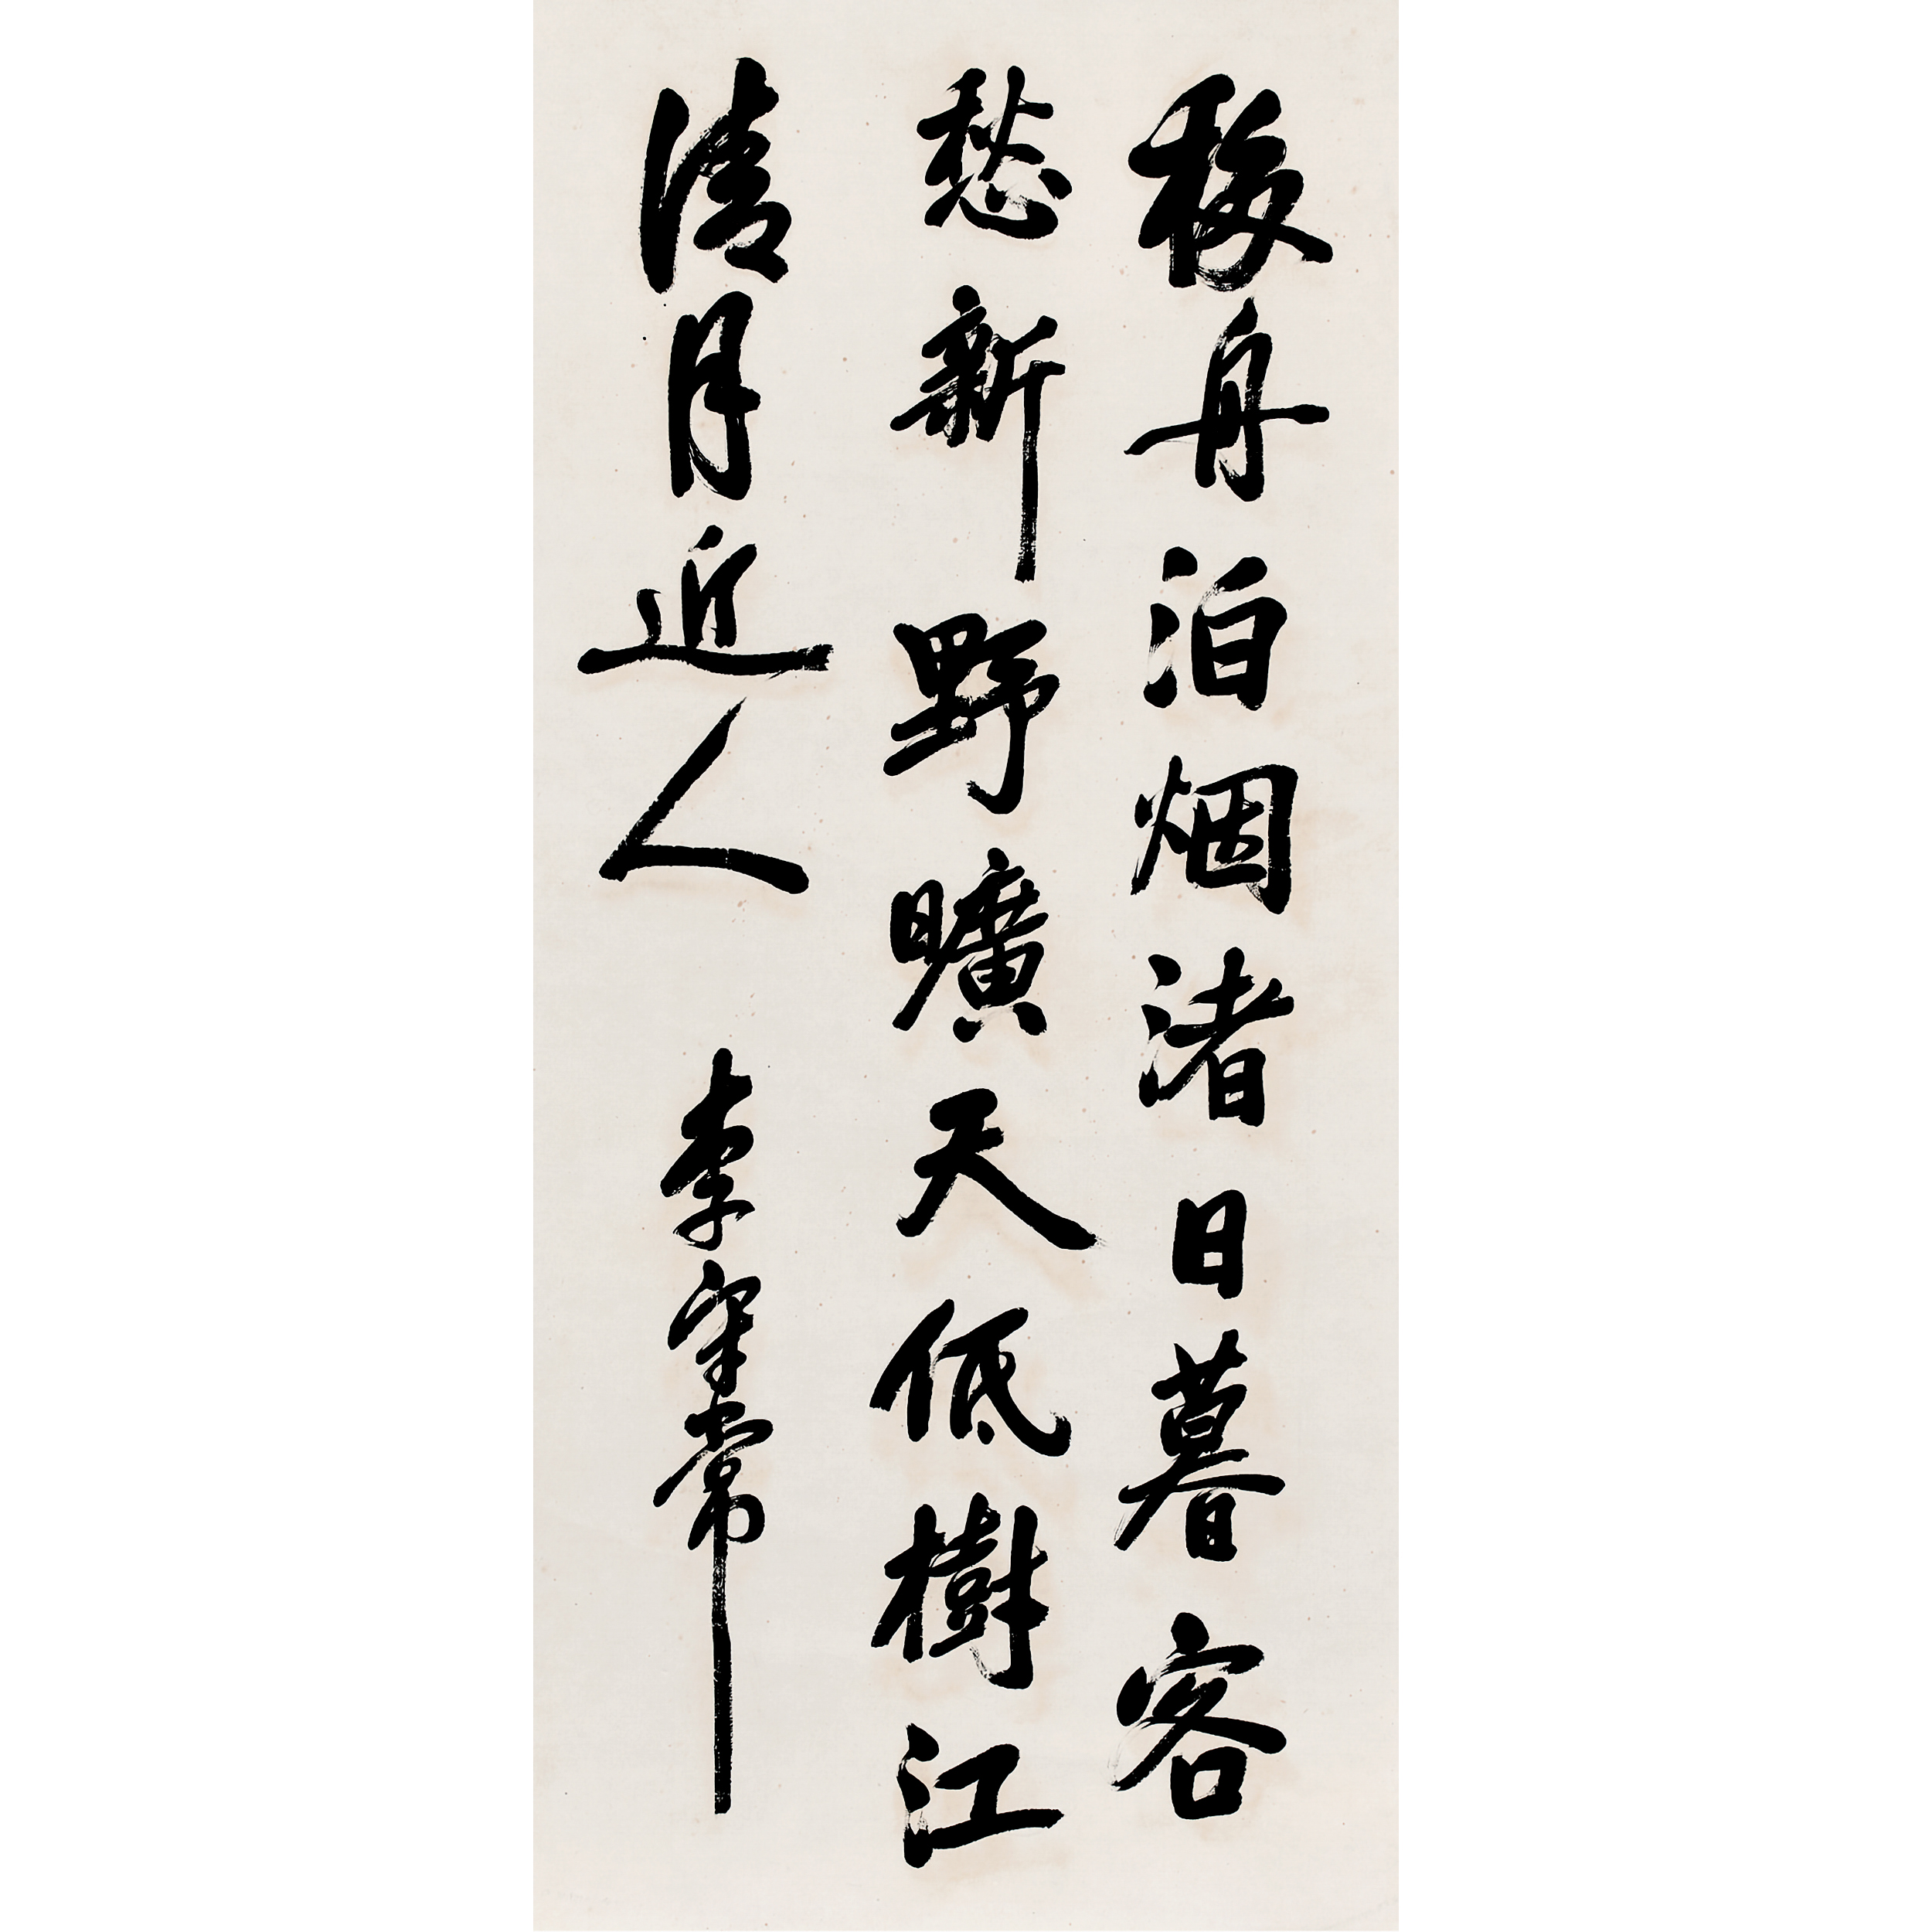 移舟泊烟渚日暮客
愁新野曠天低樹江
清月近人 李守常